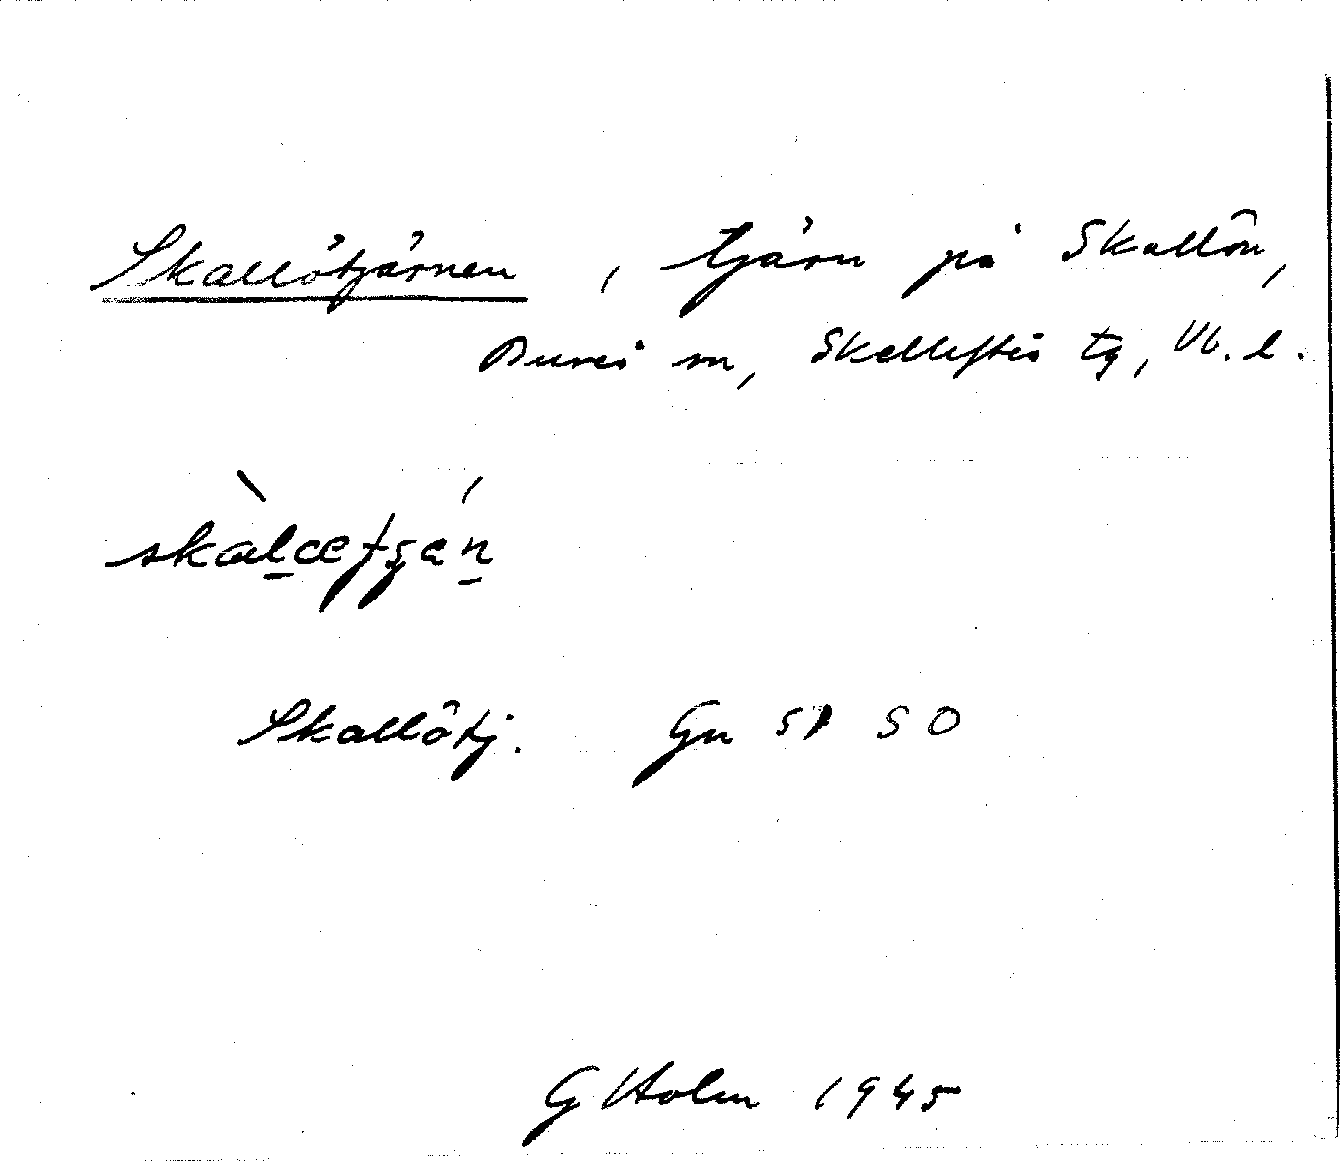 Skallötjärnen, tjärn på Skallön,
Bureå sn, Skellefteå tg, Vb. l.
Skallötj. Gu 51 SO
G Holm 1945